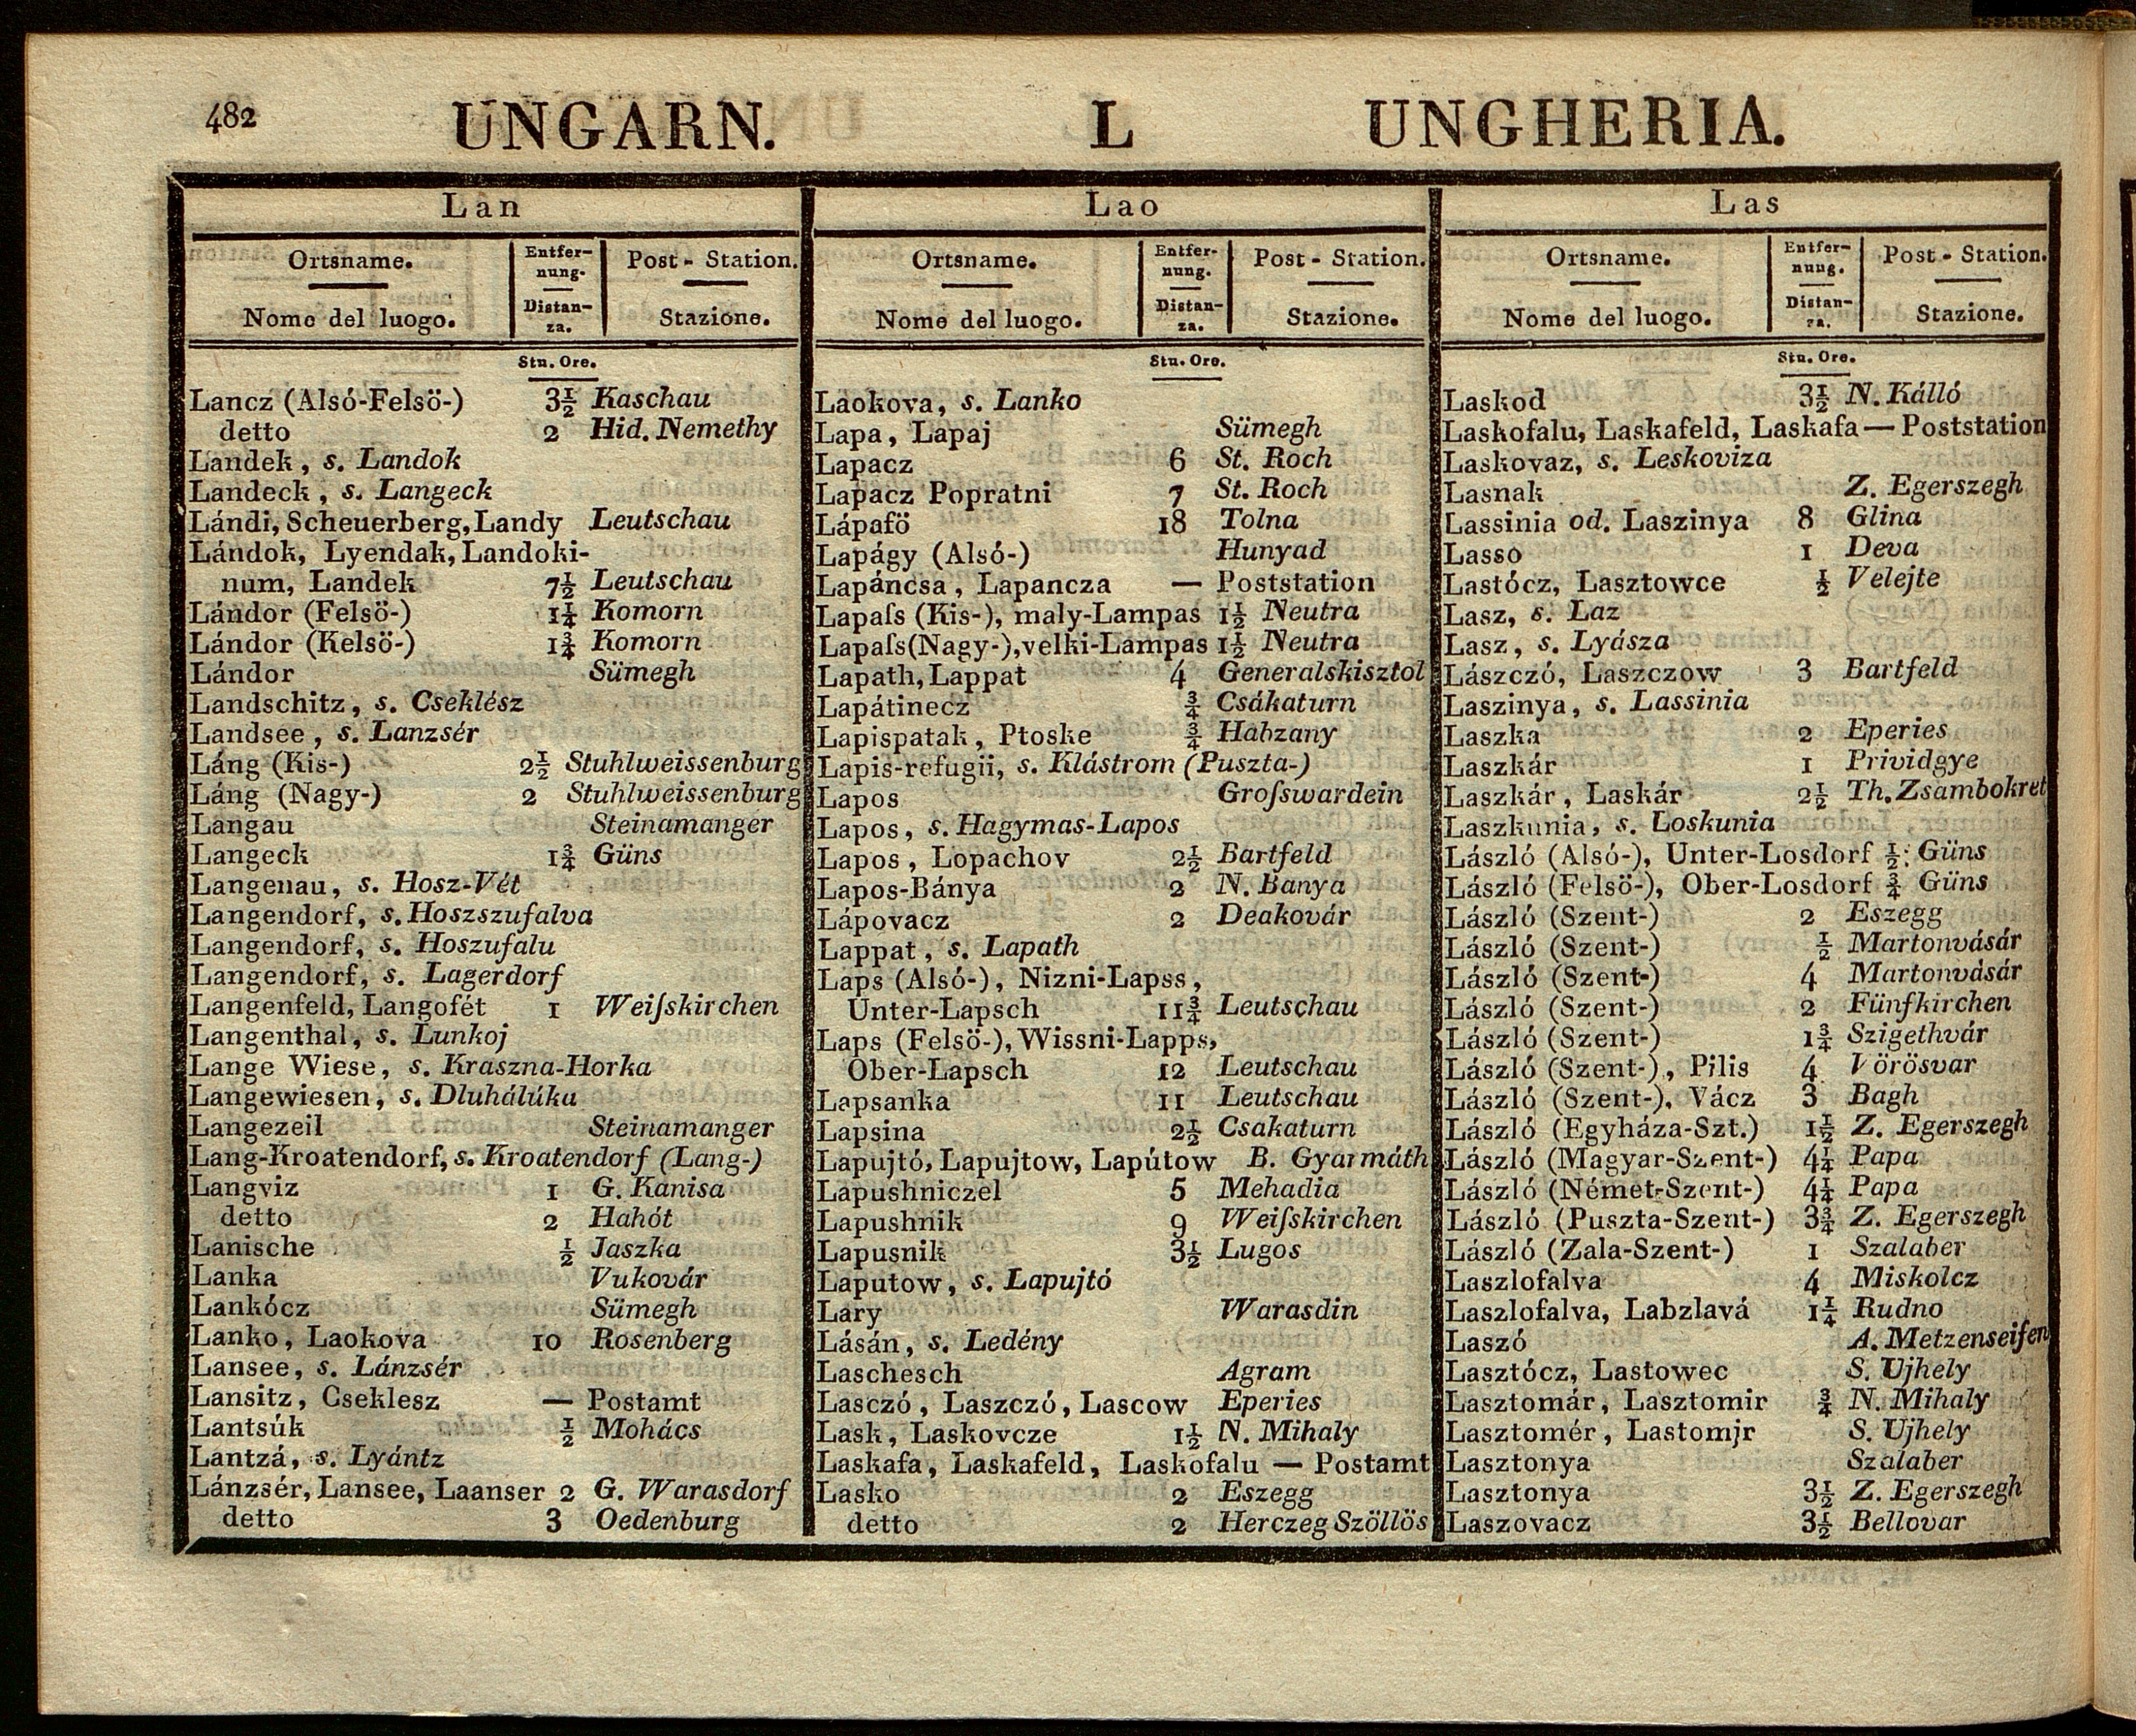 482 UNGARN. L UNGHERIA.
Lan
Ortsname. Entfer- Post-Station.
nung.
Nome del luogo. Distan- Stazione.
za.
Stn. Ore.
Lancz (Alsó-Felsö-) 3½ Kaschau
detto 2 Hid. Nemethy
Landek, s. Landok
Landeck, s. Langeck
Lándi, Scheuerberg, Landy Leutschau
Lándok, Lyendak, Landoki-
num, Landek 7½ Leutschau
Lándor (Felsö-) 1¼ Komorn
Lándor (Kelsö-) 1¾ Komorn
Lándor Sümegh
Landschitz, s. Cseklész
Landsee, s. Lanzsér
Láng (Kis-) 2½ Stuhlweissenburg
Láng (Nagy-) 2 Stuhlweissenburg
Langau Steinamanger
Langeck 1¾ Güns
Langenau, s. Hosz-Vét
Langendorf, s. Hoszszufalva
Langendorf, s. Hoszufalu
Langendorf, s. Lagerdorf
Langenfeld, Langofét 1 Weiſskirchen
Langenthal, s. Lunkoj
Lange Wiese, s. Kraszna-Horka
Langewiesen, s. Dluhálúka
Langezeil Steinamanger
Lang-Kroatendorf, s. Kroatendorf (Lang-)
Langviz 1 G. Kanisa
detto 2 Hahót
Lanische ½ Jaszka
Lanka Vukovár
Lankócz Sümegh
Lanko, Laokova 10 Rosenberg
Lansee, s. Lánzsér
Lansitz, Cseklesz — Postamt
Lantsúk ½ Mohács
Lantzá, s. Lyántz
Lánzsér, Lansee, Laanser 2 G. Warasdorf
detto 3 Oedenburg
Lao
Ortsname. Entfer- Post-Station.
nung.
Nome del luogo. Distan- Stazione.
za.
Stn. Ore.
Laokova, s. Lanko
Lapa, Lapaj Sümegh
Lapacz 6 St. Roch
Lapacz Popratni 7 St. Roch
Lápafö 18 Tolna
Lapágy (Alsó-) Hunyad
Lapáncsa, Lapancza — Poststation
Lapaſs (Kis-), maly-Lampas 1½ Neutra
Lapaſs(Nagy-), velki-Lampas 1½ Neutra
Lapath, Lappat 4 Generalskisztol
Lapátinecz ¾ Csákaturn
Lapispatak, Ptoske ¾ Habzany
Lapis-refugii, s. Klástrom (Puszta-)
Lapos Groſswardein
Lapos, s. Hagymas-Lapos
Lapos, Lopachov 2½ Bartfeld
Lapos-Bánya 2 N. Banya
Lápovacz 2 Deakovár
Lappat, s. Lapath
Laps (Alsó-), Nizni-Lapss,
Unter-Lapsch 11¾ Leutschau
Laps (Felsö-), Wissni-Lapps,
Ober-Lapsch 12 Leutschau
Lapsanka 11 Leutschau
Lapsina 2½ Csakaturn
Lapujtó, Lapujtow, Lapútow B. Gyarmáth
Lapushniczel 5 Mehadia
Lapushnik 9 Weiſskirchen
Lapusnik 3½ Lugos
Laputow, s. Lapujtó
Lary Warasdin
Lásán, s. Ledény
Laschesch Agram
Lasczó, Laszczó, Lascow Eperies
Lask, Laskovcze 1½ N. Mihaly
Laskafa, Laskafeld, Laskofalu — Postamt
Lasko 2 Eszegg
detto 2 Herczeg Szöllös
Las
Ortsname. Entfer- Post-Station.
nung.
Nome del luogo. Distan- Stazione.
za.
Stn. Ore.
Laskod 3½ N. Kálló
Laskofalu, Laskafeld, Laskafa — Poststation
Laskovaz, s. Leskoviza
Lasnak Z. Egerszegh
Lassinia od. Laszinya 8 Glina
Lasso 1 Deva
Lastócz, Lasztowce ½ Velejte
Lasz, s. Laz
Lasz, s. Lyásza
Lászczó, Laszczow 3 Bartfeld
Laszinya, s. Lassinia
Laszka 2 Eperies
Laszkár 1 Prividgye
Laszkár, Laskár 2½ Th. Zsambokret
Laszkunia, s. Loskunia
László (Alsó-), Unter-Losdorf ½ Güns
László (Felsö-), Ober-Losdorf ¾ Güns
László (Szent-) 2 Eszegg
László (Szent-) ½ Martonvásár
László (Szent-) 4 Martonvásár
László (Szent-) 2 Fünfkirchen
László (Szent-) 1¾ Szigethvár
László (Szent-), Pilis 4 Vörösvar
László (Szent-), Vácz 3 Bagh
László (Egyháza-Szt.) 1½ Z. Egerszegh
László (Magyar-Szent-) 4¼ Papa
László (Német-Szent-) 4¼ Papa
László (Puszta-Szent-) 3¾ Z. Egerszegh
László (Zala-Szent-) 1 Szalaber
Laszlofalva 4 Miskolcz
Laszlofalva, Labzlavá 1¼ Rudno
Laszó A. Metzenseifen
Lasztócz, Lastowec S. Ujhely
Lasztomár, Lasztomir ¾ N. Mihaly
Lasztomér, Lastomjr S. Ujhely
Lasztonya Szalaber
Lasztonya 3½ Z. Egerszegh
Laszovacz 3½ Bellovar